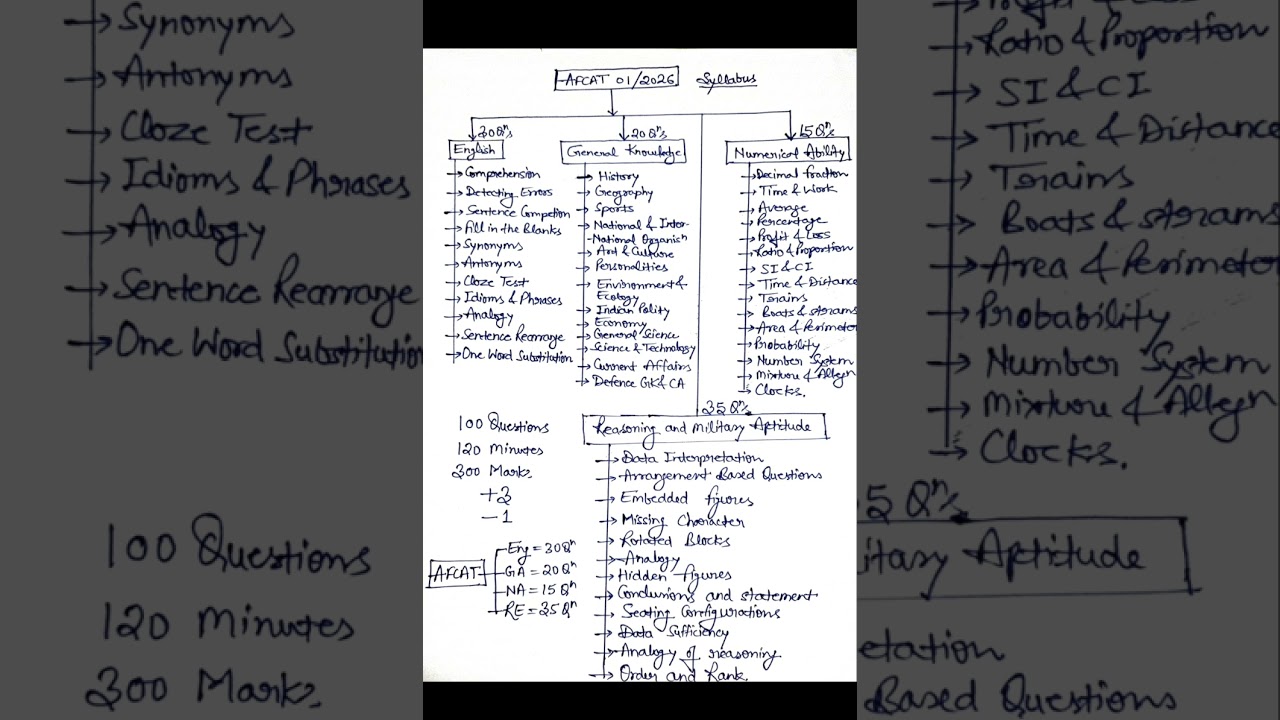 AFCAT 01/2026 Syllabus
30Qn's
English
Comprehension
Detecting Errors
Sentence Competion
Fill in the Blanks
Synonyms
Antonyms
Cloze Test
Idioms & Phrases
Analogy
Sentence Rearrange
One Word Substitution
20Qn's
General Knowledge
History
Geography
Sports
National & Inter-
National Organisn
Art & Culture
Personalities
Environment &
Ecology
Indian Polity
Economy
General Science
Science & Technology
Current Affairs
Defence GK & CA
15Qn's
Numerical Ability
Decimal fraction
Time & Work
Average
Percentage
Profit & Loss
Ratio & Proportion
SI & CI
Time & Distance
Trains
Boats & Streams
Area & Perimeter
Probability
Number System
Mixture & Allegn
Clocks.
100 Questions
120 Minutes
300 Marks
+3
-1
AFCAT
Eng = 30Qn
GA = 20Qn
NA = 15Qn
RE = 35Qn
35Qn's
Reasoning and Military Aptitude
Data Interpretation
Arrangement Based Questions
Embedded figures
Missing Character
Rotated Blocks
Analogy
Hidden figures
Conclusions and statement
Seating Configurations
Data Sufficiency
Analogy of reasoning
Order and Rank
Synonyms
Antonyms
Cloze Test
Idioms & Phrases
Analogy
Sentence Rearrange
One Word Substitution
100 Questions
120 Minutes
300 Marks
Ratio & Proportion
SI & CI
Time & Distance
Trains
Boats & Streams
Area & Perimeter
Probability
Number System
Mixture & Allegn
Clocks.
5Qn's
litary Aptitude
etation
Based Questions